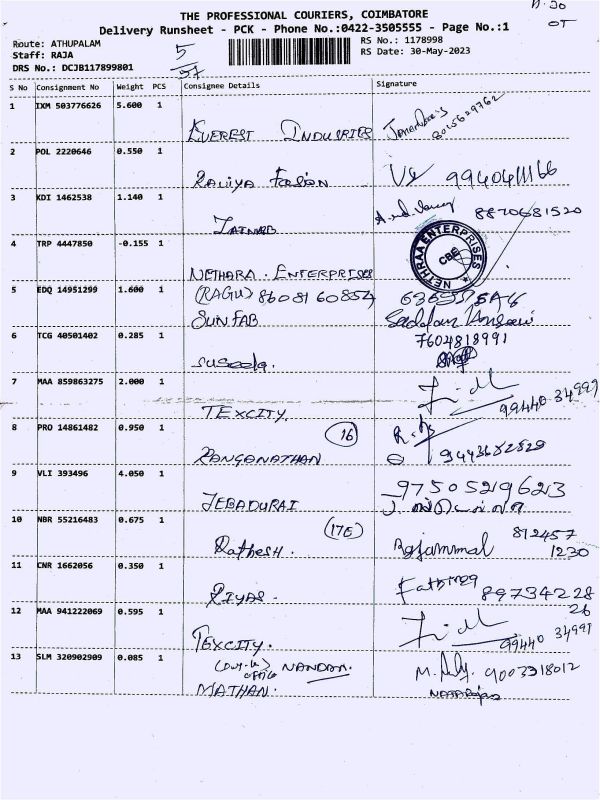 THE PROFESSIONAL COURIERS, COIMBATORE
Delivery Runsheet - PCK - Phone No.:0422-3505555 - Page No.:1
Route: ATHUPALAM
RS No.: 1178998
Staff: RAJA
RS Date: 30-May-2023
DRS No.: DCJB117899801
S No Consignment No Weight PCS Consignee Details Signature
1 IXM 503776626 5.600 1
EVEREST INDUSRIES 8015629762
2 POL 2220646 0.550 1
RALIYA
3 KDI 1462538 1.140 1
ZAINAB 8870681520
4 TRP 4447850 -0.155 1
NETHRAA ENTERPRISES CBE
NETHARA. ENTERPRISES
5 EDQ 14951299 1.600 1
(RAGU) 8608160854
SUNFAB
6 TCG 40501402 0.285 1
7604818991
suseela.
7 MAA 859863275 2.000 1
TEXCITY. 99440 34991
8 PRO 14861482 0.950 1
(16)
RANGANATHAN 9443682829
9 VLI 393496 4.050 1
9750529623
JEBADURAI
10 NBR 55216483 0.675 1
(17E)
Rathesh. Rajammal 812457
1230
11 CNR 1662056 0.350 1
Fathima 89734228
26
RIYAS.
12 MAA 941222069 0.595 1
TEXCITY. 99440 34991
13 SLM 320902909 0.085 1
NANDAM. 9003318012
MATHAN. NATARAJAN